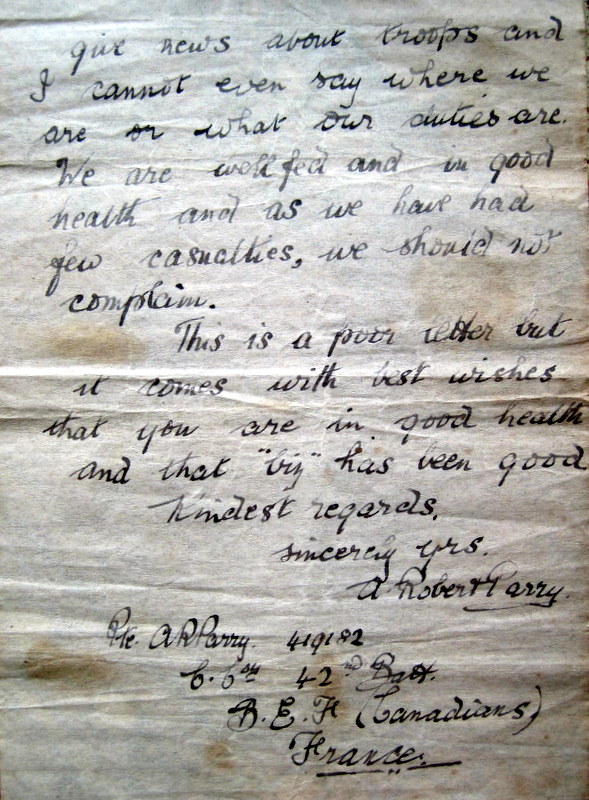 give news about troops and
I cannot even say where we
are or what our duties are.
We are well fed and in good
health and as we have had
few casualties, we should not
complain.
This is a poor letter but
it comes with best wishes
that you are in good health
and that "biz" has been good
Kindest regards.
sincerely yrs.
A. Robert Parry.
Pte. A R Parry. 419182
C. Coy 42nd Batt.
B. E. F (Canadians)
France.